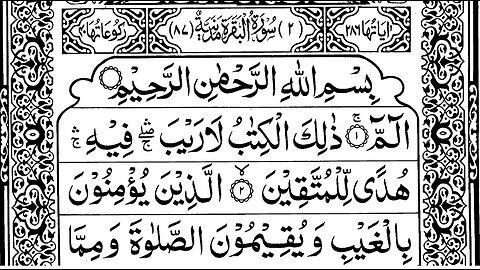 اٰیَاتُهَا ۲۸۶ (۲) سُوْرَةُ الْبَقَرَةِ مَدَنِيَّةٌ (۸۷) رُكُوْعَاتُهَا ۴۰
بِسْمِ اللهِ الرَّحْمٰنِ الرَّحِيْمِ
الٓمّٓ ۚ﴿۱﴾ ذٰلِكَ الْكِتٰبُ لَا رَيْبَ ۛۖۚ فِيْهِ ۛۚ
هُدًى لِّلْمُتَّقِيْنَ ۙ﴿۲﴾ الَّذِيْنَ يُؤْمِنُوْنَ
بِالْغَيْبِ وَيُقِيْمُوْنَ الصَّلٰوةَ وَمِمَّا